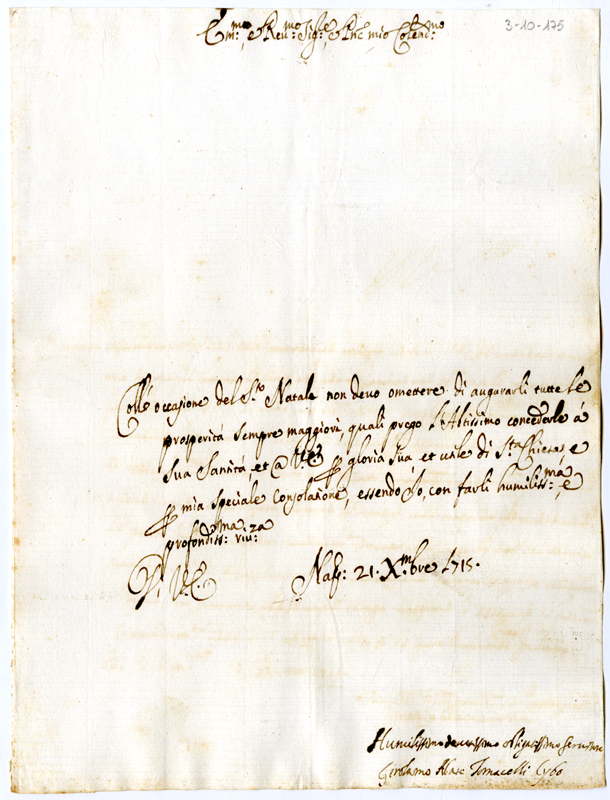 3-10-175
Em:mo, e Reu:mo Sig:re, e Pne mio Colend:mo
Coll'occasione del S:to Natale non devo omettere di augurarli tutte le
prosperità sempre maggiori, quali prego l'Altissimo concederle à
Sua Santità, et @ V:E: gloria sua, et utile di S:ta Chiesa, e
mia speciale consolatione, essendo Io, con farli humiliss:ma, e
profondiss:ma riu:za
Di V:E:
Nap: 21. Xmbre 1715.
Humilissimo devotissimo obligatissimo servitore
Tomacelli Cybo